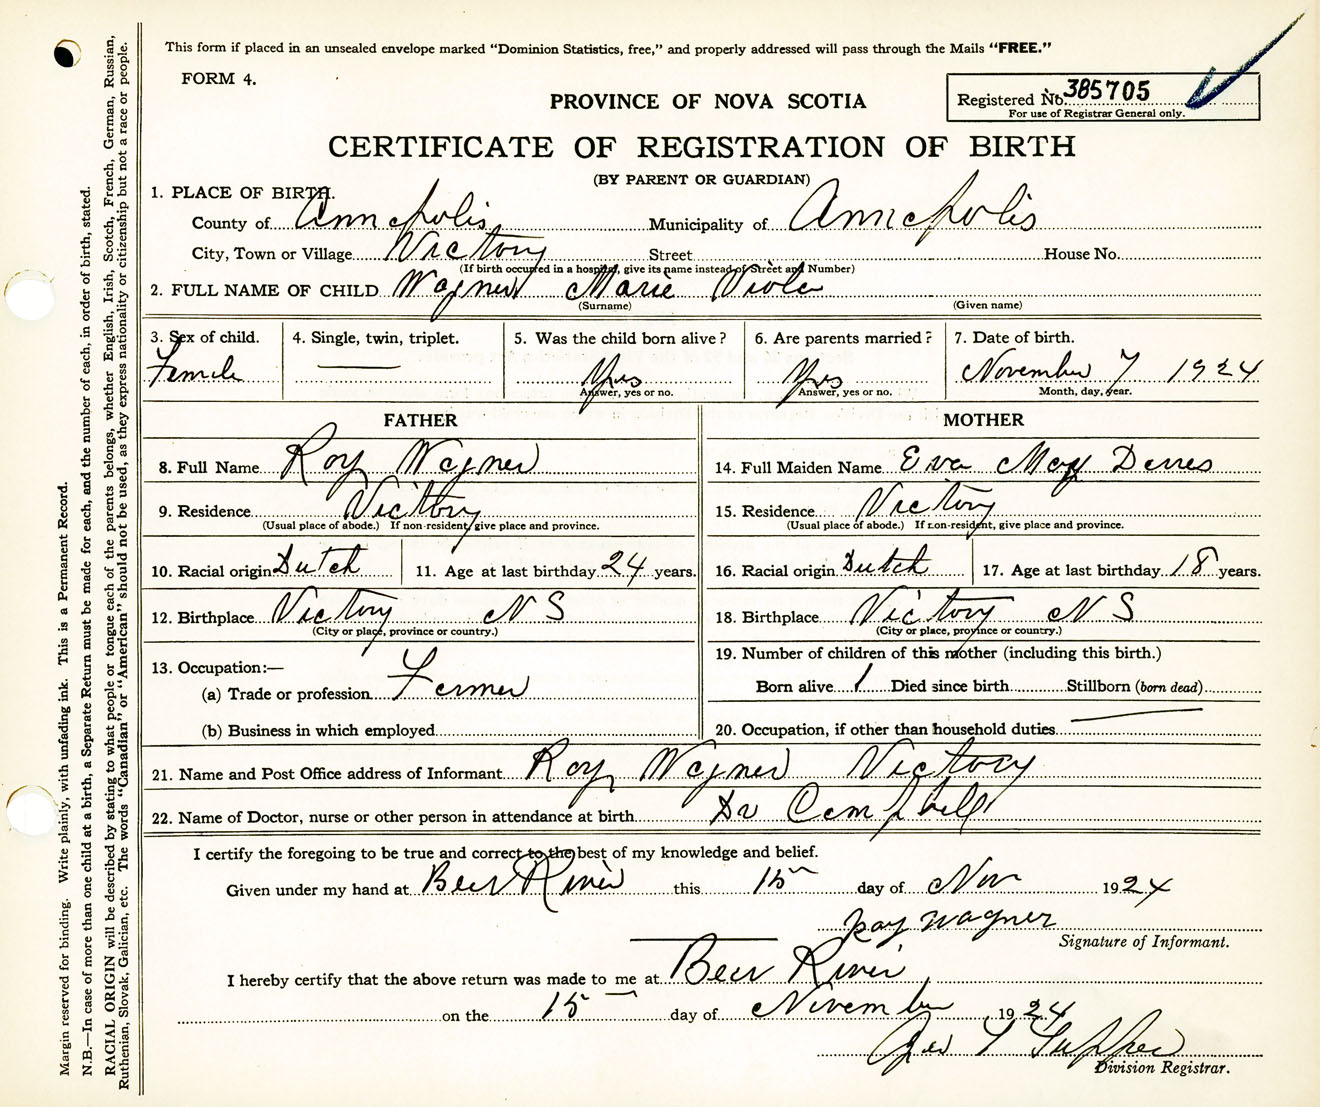 This form if placed in an unsealed envelope marked "Dominion Statistics, free," and properly addressed will pass through the Mails "FREE."
FORM 4.
Registered No. 385705
For use of Registrar General only.
PROVINCE OF NOVA SCOTIA
CERTIFICATE OF REGISTRATION OF BIRTH
(BY PARENT OR GUARDIAN)
1. PLACE OF BIRTH.
County of Annapolis Municipality of Annapolis
City, Town or Village Victory Street House No.
(If birth occurred in a hospital, give its name instead of Street and Number)
2. FULL NAME OF CHILD Wagner Marie Viola
(Surname) (Given name)
3. Sex of child. 4. Single, twin, triplet. 5. Was the child born alive? 6. Are parents married? 7. Date of birth.
Female — Yes Yes November 7 1924
Answer, yes or no. Answer, yes or no. Month, day, year.
FATHER MOTHER
8. Full Name Roy Wagner 14. Full Maiden Name Eva May
9. Residence Victory 15. Residence Victory
(Usual place of abode.) If non-resident, give place and province. (Usual place of abode.) If non-resident, give place and province.
10. Racial origin Dutch 11. Age at last birthday 24 years. 16. Racial origin Dutch 17. Age at last birthday 18 years.
12. Birthplace Victory N S 18. Birthplace Victory N S
(City or place, province or country.) (City or place, province or country.)
13. Occupation:— 19. Number of children of this mother (including this birth.)
(a) Trade or profession Farmer Born alive 1 Died since birth Stillborn (born dead)
(b) Business in which employed 20. Occupation, if other than household duties —
21. Name and Post Office address of Informant Roy Wagner Victory
22. Name of Doctor, nurse or other person in attendance at birth Dr Campbell
I certify the foregoing to be true and correct to the best of my knowledge and belief.
Given under my hand at Bear River this 15 day of Nov 1924
Roy Wagner
Signature of Informant.
I hereby certify that the above return was made to me at Bear River
on the 15 day of November 1924
Tupper
Division Registrar.
Margin reserved for binding. Write plainly, with unfading ink. This is a Permanent Record.
N.B.—In case of more than one child at a birth, a Separate Return must be made for each, and the number of each, in order of birth, stated.
RACIAL ORIGIN will be described by stating to what people or tongue each of the parents belongs, whether English, Irish, Scotch, French, German, Russian,
Ruthenian, Slovak, Galician, etc. The words "Canadian" or "American" should not be used, as they express nationality or citizenship but not a race or people.